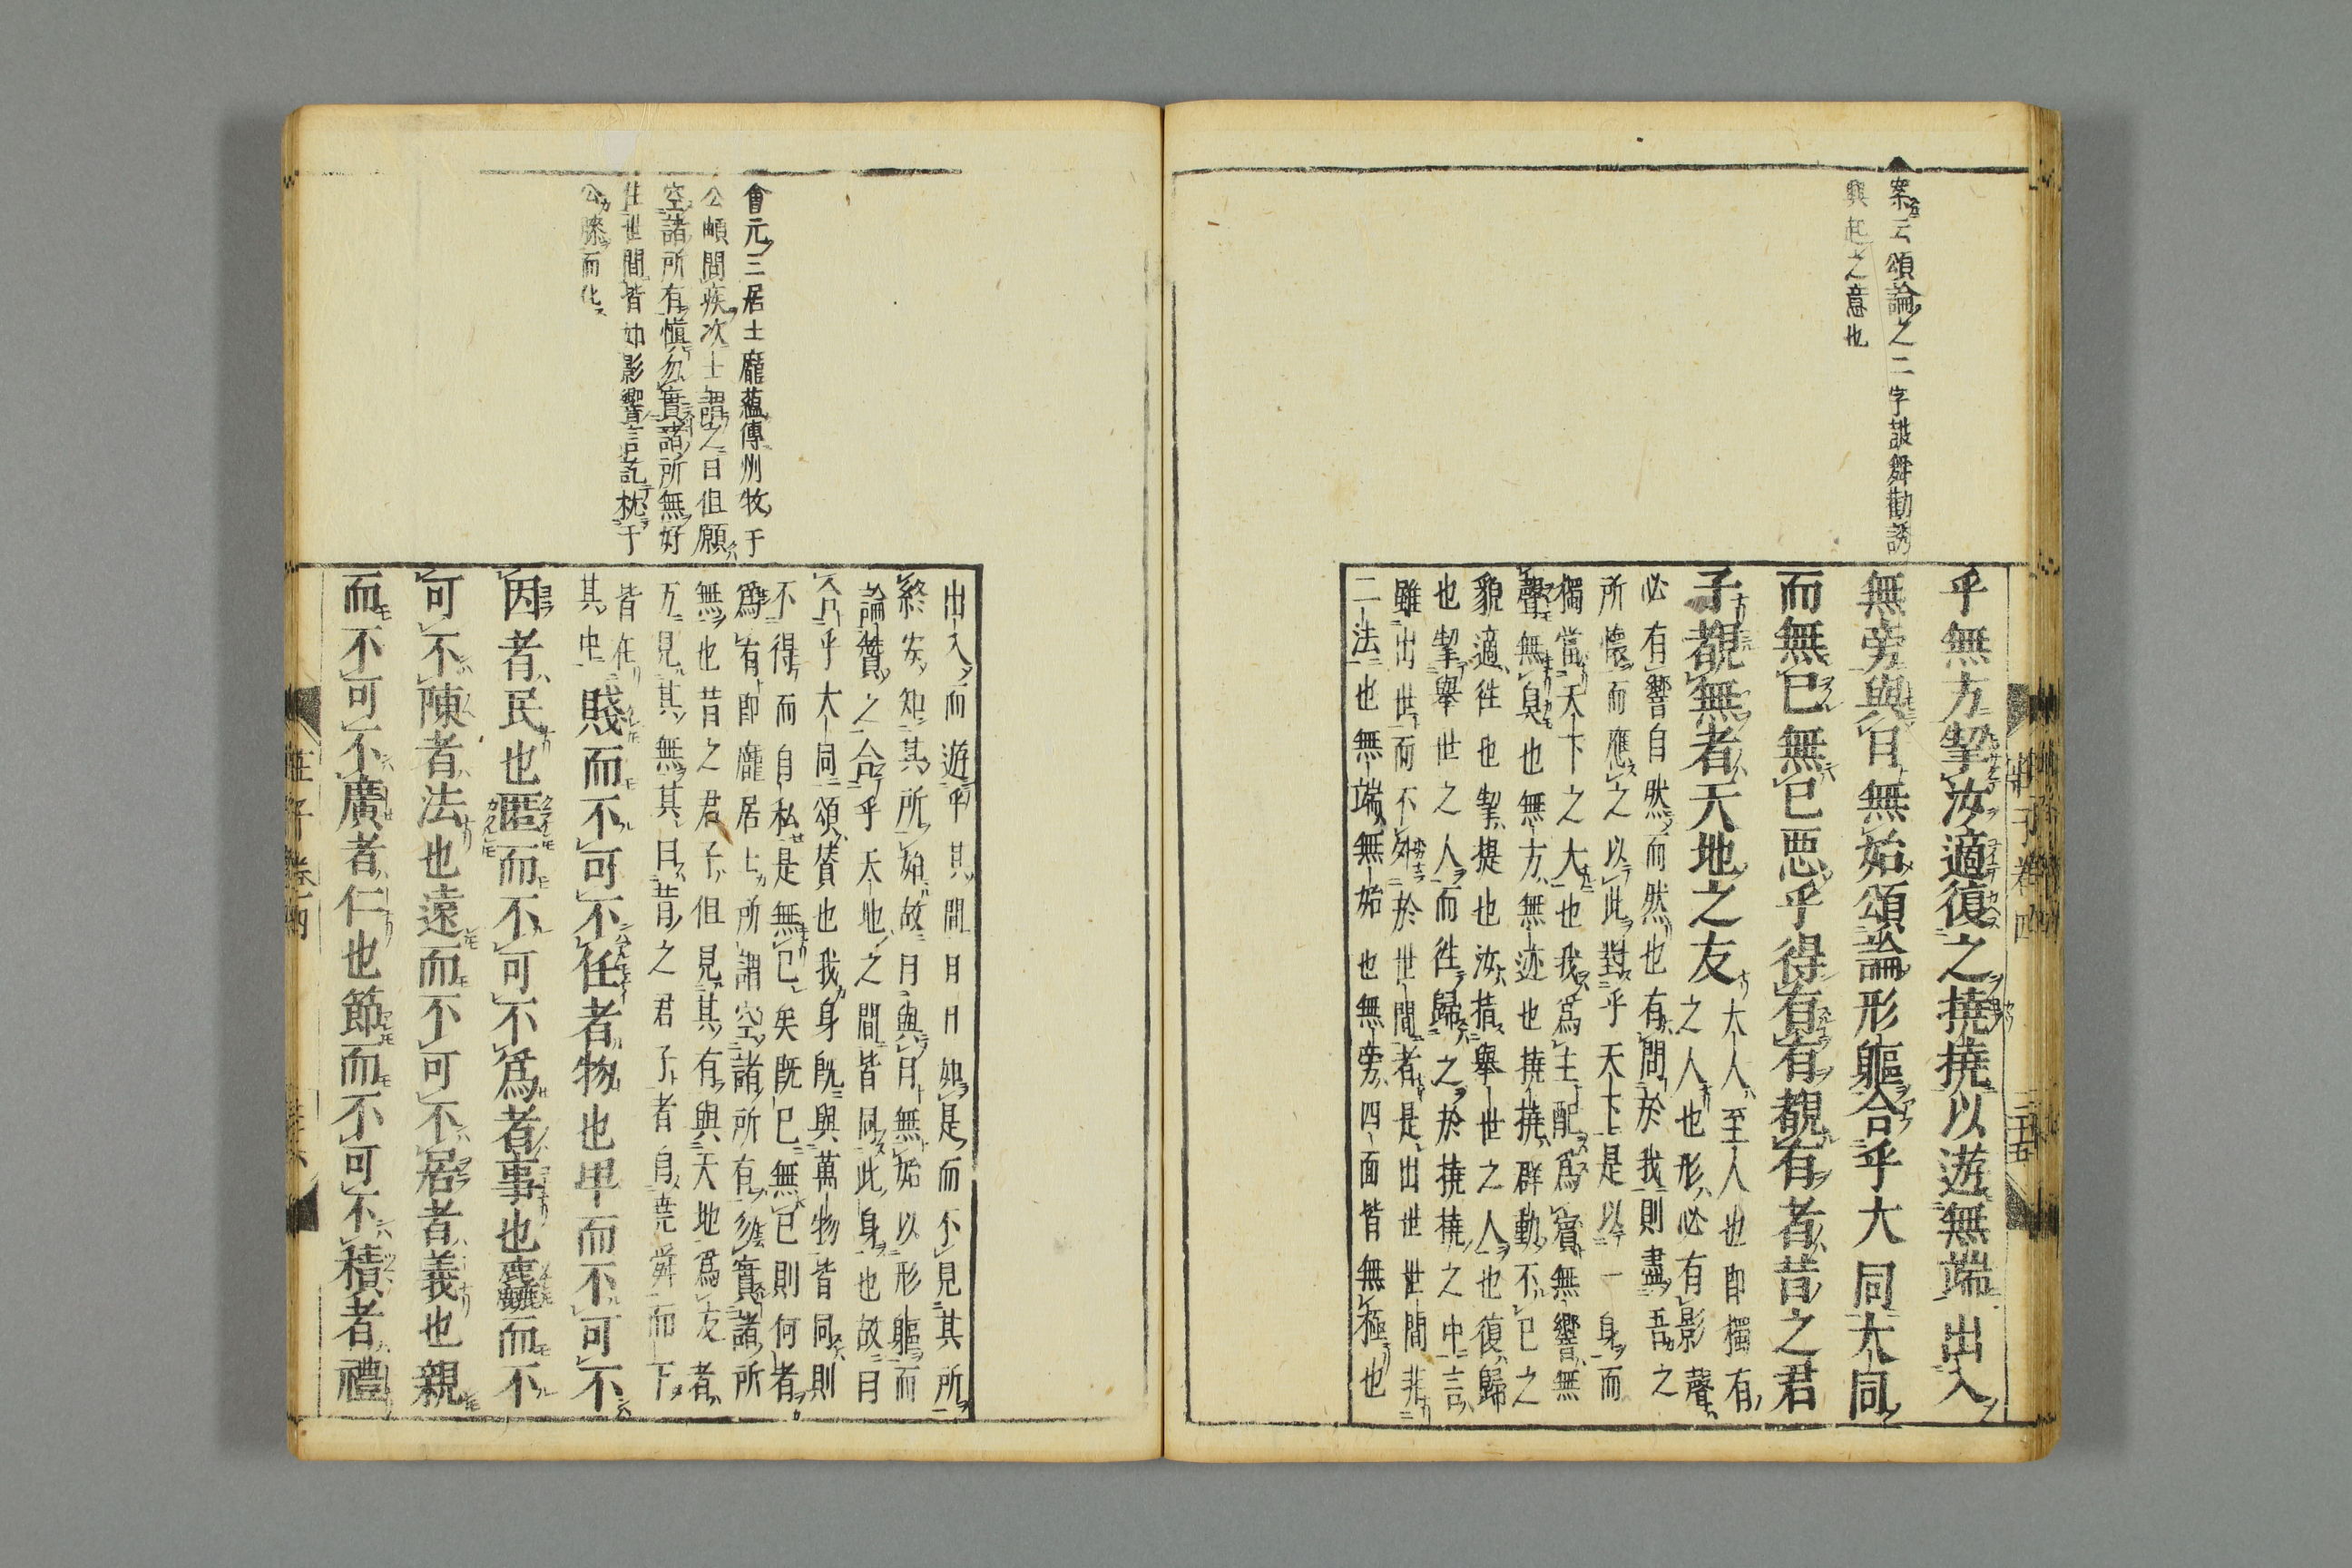 案云頌論之二字鼓舞勸誘
興起之意也
莊子卷四
三十五
乎無方挈汝適復之撓撓以遊無端出入
無旁與日無始頌論形軀合乎大同大同
而無己無己惡乎得有有覩有者昔之君
子覩無者天地之友
大人至人也即獨有
之人也形必有影聲
必有響自然而然也有問於我則盡吾之
所懷而應之以此對乎天下是以一身而
獨當天下之大也我爲主配爲賓無響無
聲無臭也無方無迹也撓撓群動不已之
貌適徃也挈提也汝指舉世之人也復歸
也挈舉世之人而徃歸之於撓撓之中言
雖出世而不外於世間者是出世世間非
二法也無端無始也無旁四面皆無極也
會元三居士龐蘊傳州牧于
公頔問疾次士謂之曰但願
空諸所有愼勿實諸所無好
住世間皆如影響言訖枕于
公膝而化
出入而遊乎其間日日如是而不見其所
終安知其所始故曰與日無始以形軀而
論贊之合乎天地之間皆同此身也故曰
合乎大同頌賛也我身旣與萬物皆同則
不得而自私是無己矣旣已無己則何者
爲有即龐居士所謂空諸所有勿實諸所
無也昔之君子但見其有與天地爲友者
方見其無其曰昔之君子者自堯舜而下
皆在
其中
賤而不可不任者物也卑而不可不
因者民也匿而不可不爲者事也麤而不
可不陳者法也遠而不可不居者義也親
而不可不廣者仁也節而不可不積者禮
莊子卷四